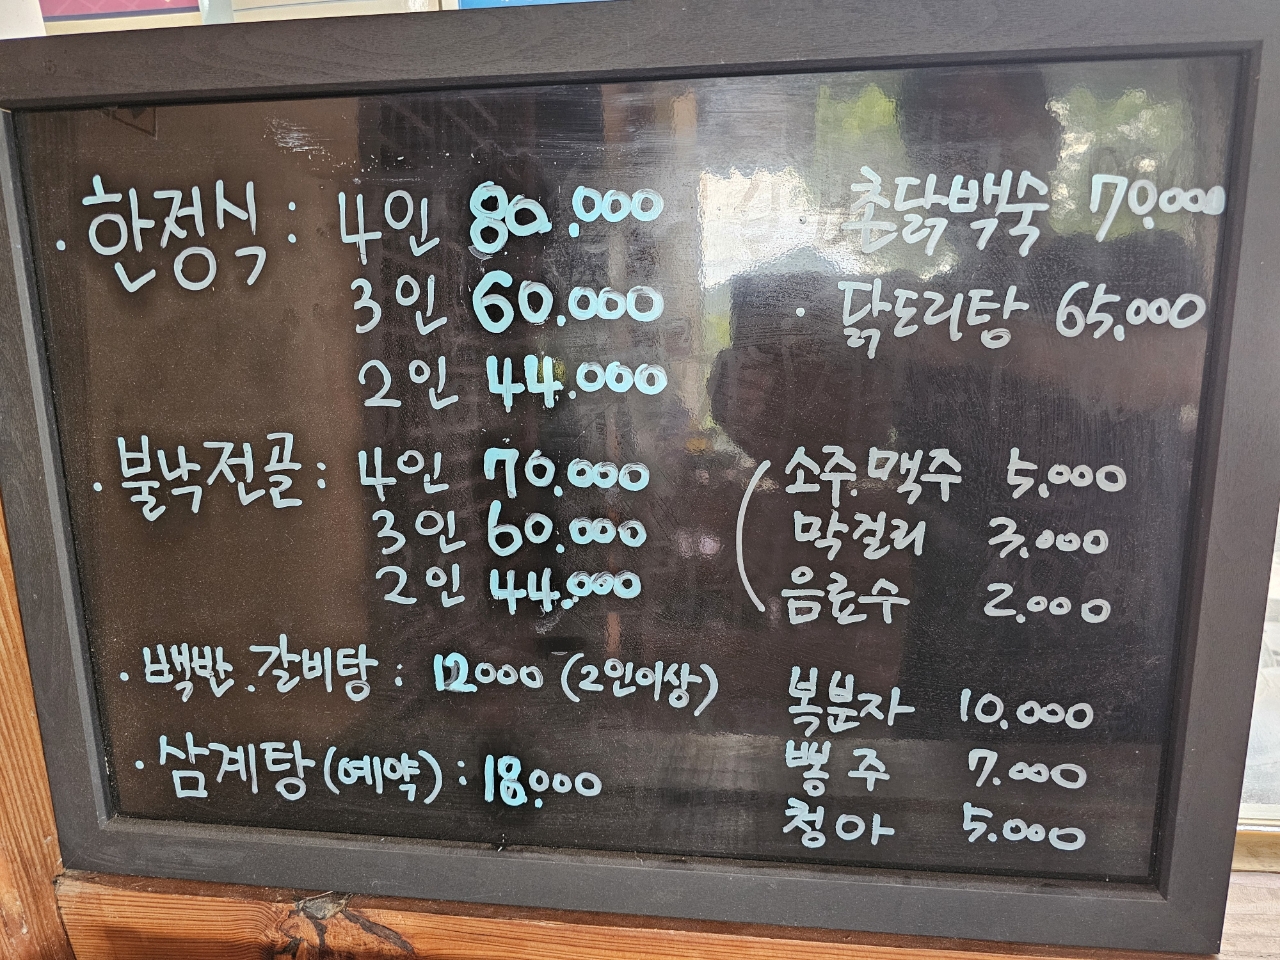 · 한정식 : 4인 80.000
3인 60.000
2인 44.000
· 불낙전골 : 4인 70.000
3인 60.000
2인 44.000
· 백반.갈비탕 : 12000 (2인이상)
· 삼계탕(예약) : 18.000
촌닭백숙 70.000
· 닭도리탕 65.000
소주.맥주 5.000
막걸리 3.000
음료수 2.000
복분자 10.000
뽕주 7.000
청아 5.000